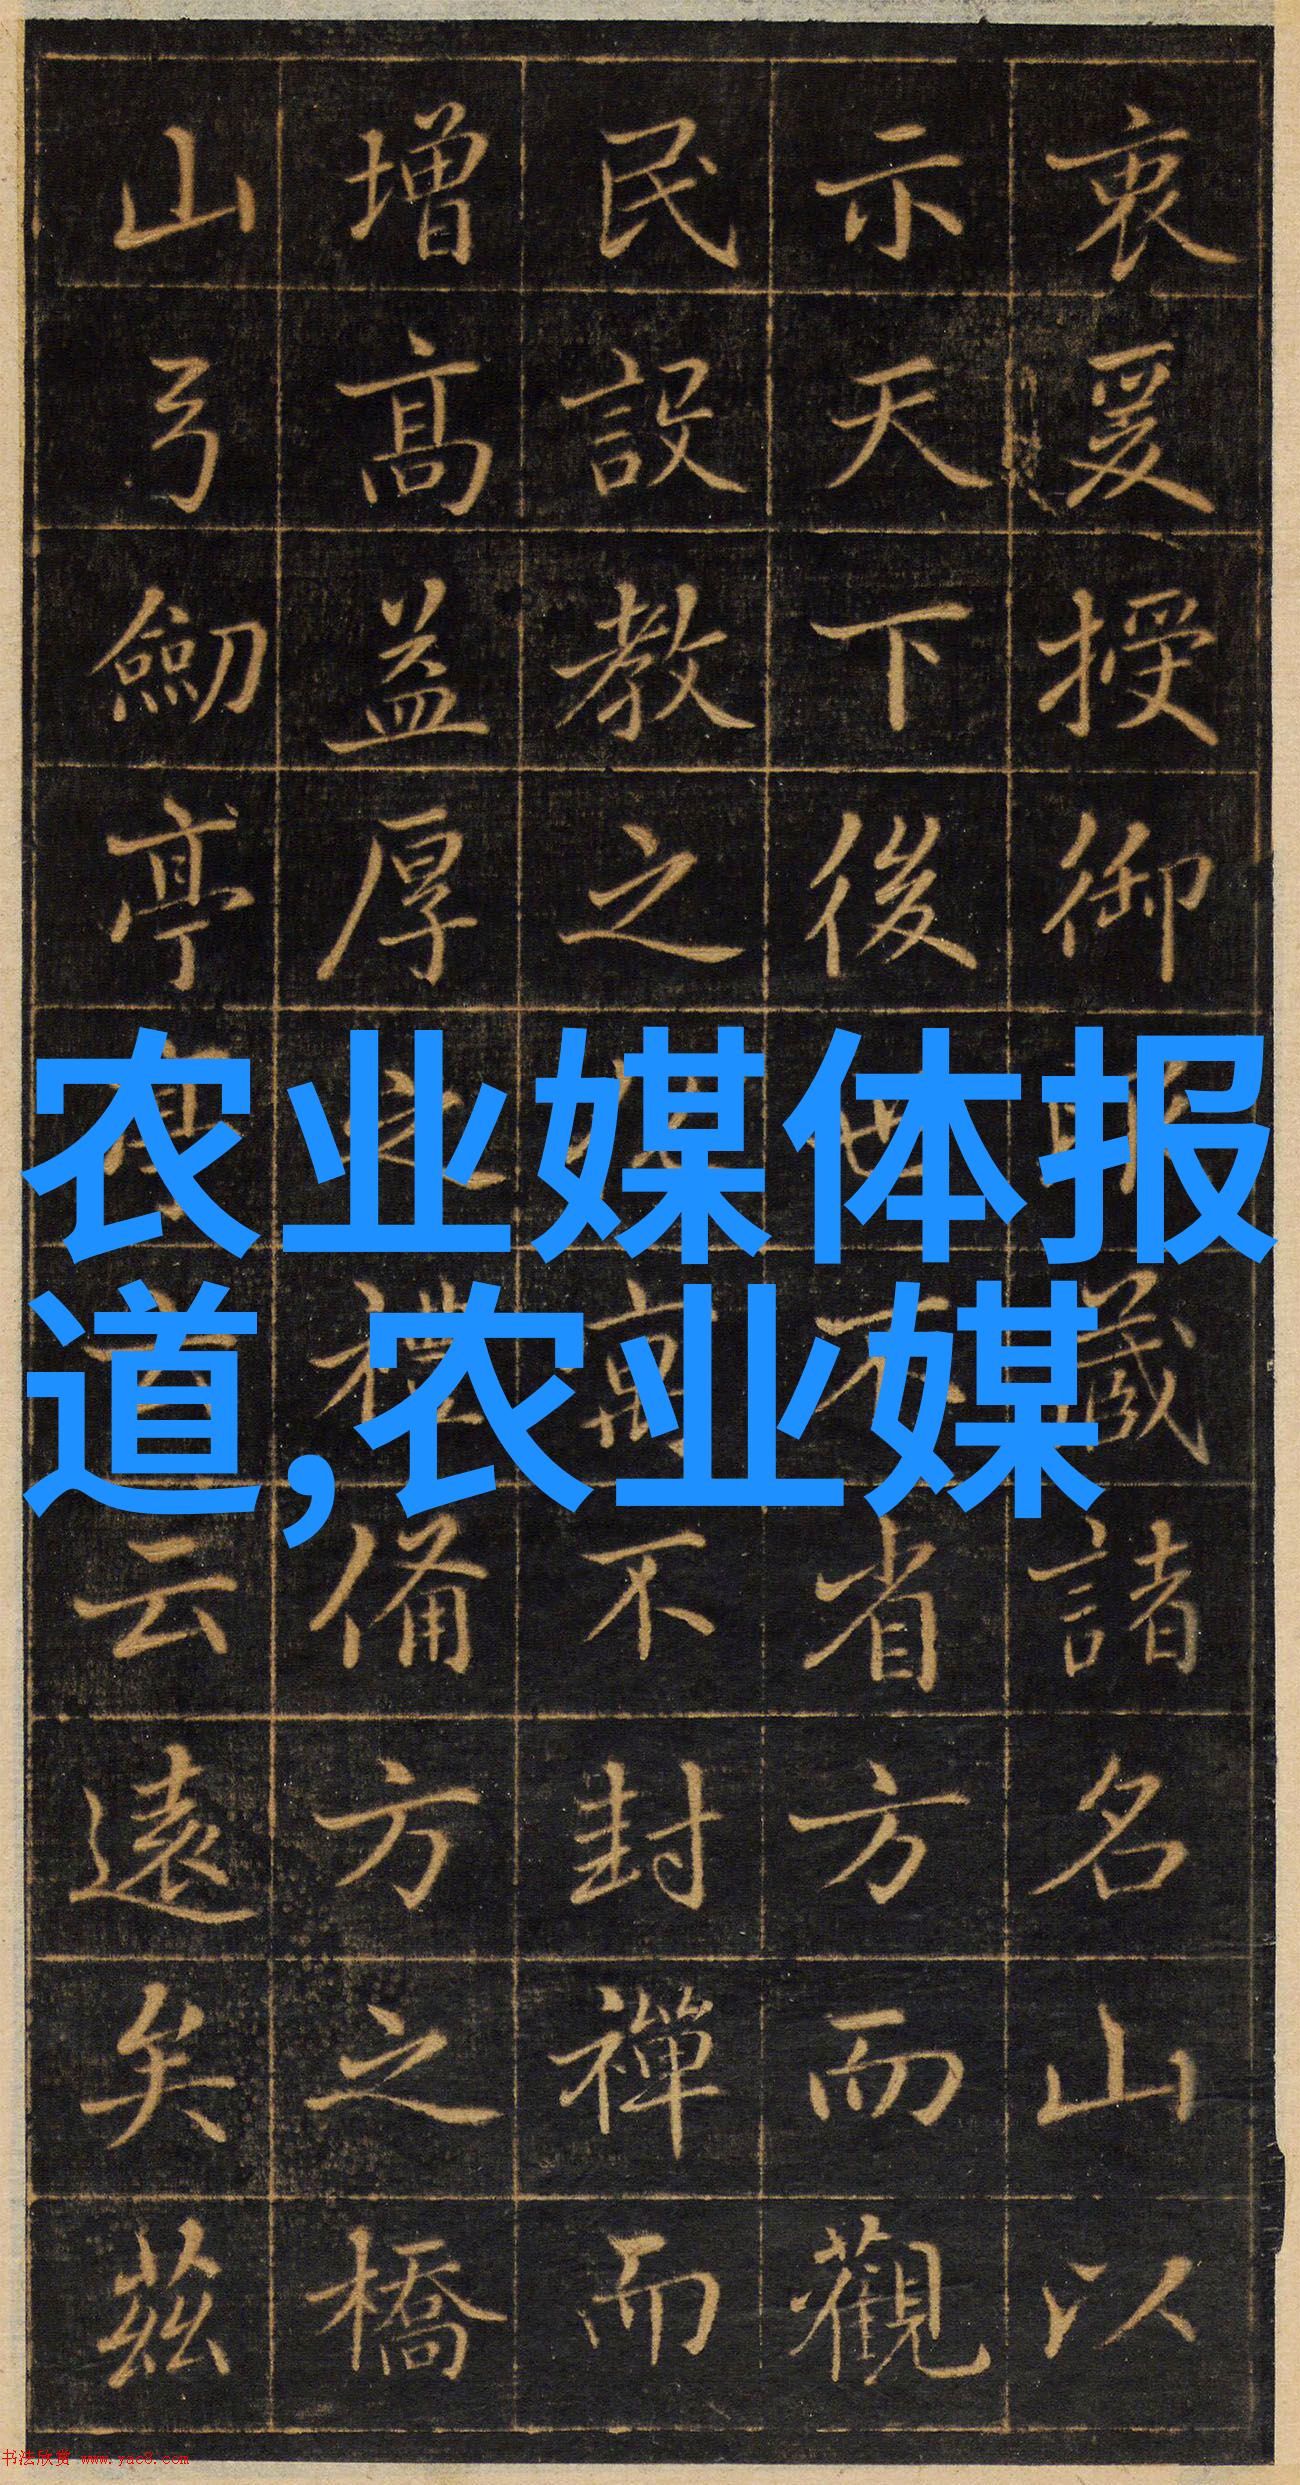 衷爰授御藏諸名山以
示天下後世不省方而觀
民設教之萬不封禪而
增髙益厚禮備方之橋
山弓劒亭云遠矣茲
农业媒体报
道,农业媒
书法欣赏 www.yac8.com